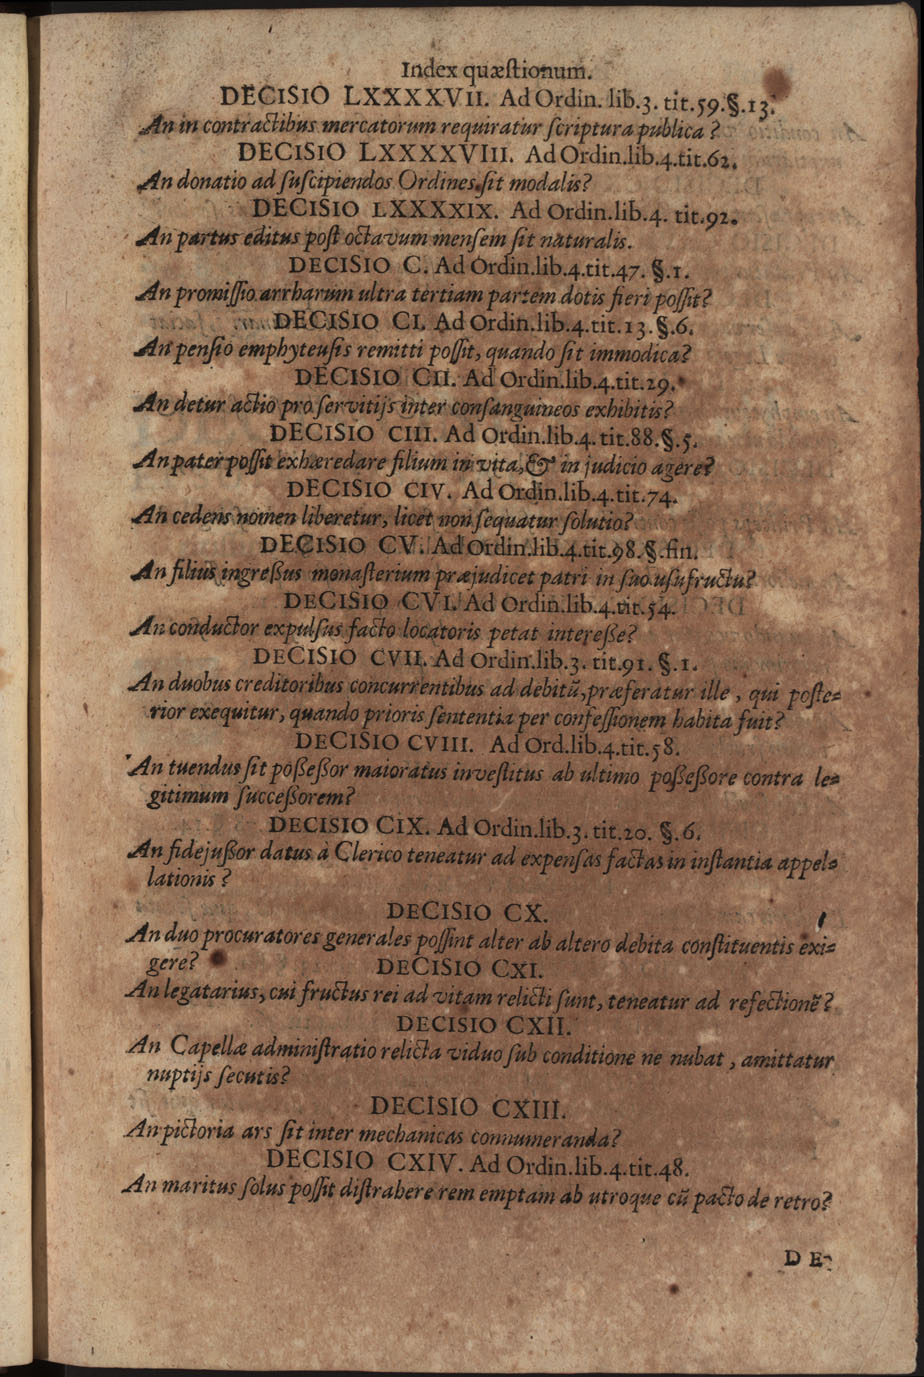 Index quæstionum.
DECISIO LXXXXVII. Ad Ordin. lib.3. tit.59.§.13.
An in contractibus mercatorum requiratur ſcriptura publica?
DECISIO LXXXXVIII. Ad Ordin.lib.4.tit.62.
An donatio ad ſuſcipiendos Ordines ſit modalis?
DECISIO LXXXXIX. Ad Ordin.lib.4. tit.92.
An partus editus poſt octavum menſem ſit naturalis.
DECISIO C. Ad Ordin.lib.4.tit.47. §.1.
An promiſſio arrharum ultra tertiam partem dotis fieri poſſit?
DECISIO CI. Ad Ordin.lib.4.tit.13.§.6.
An penſio emphyteuſis remitti poſſit, quando ſit immodica?
DECISIO CII. Ad Ordin.lib.4.tit.29.
An detur actio pro ſervitijs inter conſanguineos exhibitis?
DECISIO CIII. Ad Ordin.lib.4.tit.88.§.5.
An pater poſſit exhæredare filium in vita, & in judicio agere?
DECISIO CIV. Ad Ordin.lib.4.tit.74.
An cedens nomen liberetur, licet non ſequatur ſolutio?
DECISIO CV. Ad Ordin.lib.4.tit.98.§.fin.
An filius ingreßus monaſterium præjudicet patri in ſuo uſufructu?
DECISIO CVI. Ad Ordin.lib.4.tit.54.
An conductor expulſus facto locatoris petat intereße?
DECISIO CVII. Ad Ordin.lib.3. tit.91. §.1.
An duobus creditoribus concurrentibus ad debitũ, præferatur ille, qui poſte-
rior exequitur, quando prioris ſententia per confeſſionem habita fuit?
DECISIO CVIII. Ad Ord.lib.4.tit.58.
An tuendus ſit poßeßor maioratus inveſtitus ab ultimo poßeßore contra le-
gitimum ſucceßorem?
DECISIO CIX. Ad Ordin.lib.3.tit.20. §.6.
An fidejußor datus à Clerico teneatur ad expenſas factas in inſtantia appel-
lationis?
DECISIO CX.
An duo procuratores generales poſſint alter ab altero debita conſtituentis exi-
gere?
DECISIO CXI.
An legatarius, cui fructus rei ad vitam relicti ſunt, teneatur ad refectionẽ?
DECISIO CXII.
An Capellæ adminiſtratio relicta viduo ſub conditione ne nubat, amittatur
nuptijs ſecutis?
DECISIO CXIII.
An pictoria ars ſit inter mechanicas connumeranda?
DECISIO CXIV. Ad Ordin.lib.4.tit.48.
An maritus ſolus poſſit diſtrahere rem emptam ab utroque cũ pacto de retro?
DE-